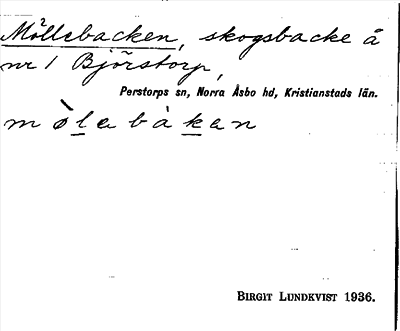 Möllebacken, skogsbacke å
nr 1 Björstorp,
Perstorps sn, Norra Åsbo hd, Kristianstads län.
mø̀lebàken
BIRGIT LUNDKVIST 1936.